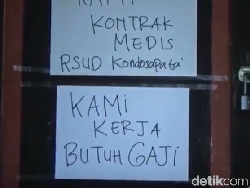 KONTRAK
MEDIS
RSUD Kondosapatai
KAMi
KERJA
BUTUH GAJi
detikcom